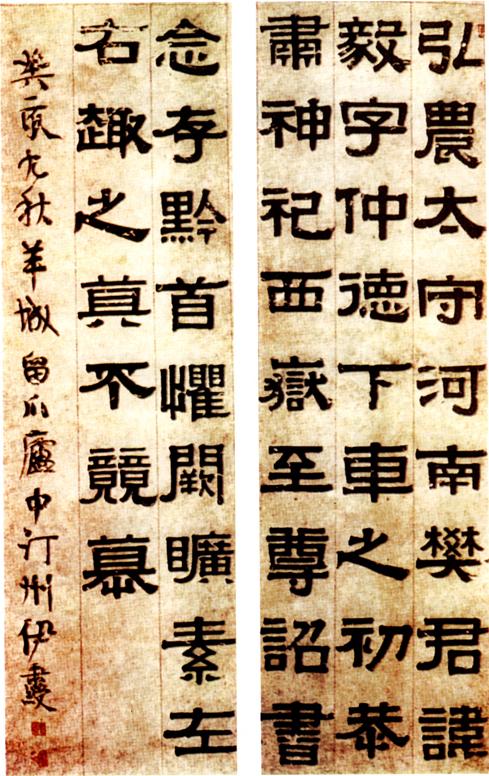 弘農太守河南樊君諱
毅字仲德下車之初恭
肅神祀西嶽至尊詔書
念存黔首懼闕曠素左
右趣之真不競慕
癸酉九秋羊城留爪廬中汀州伊